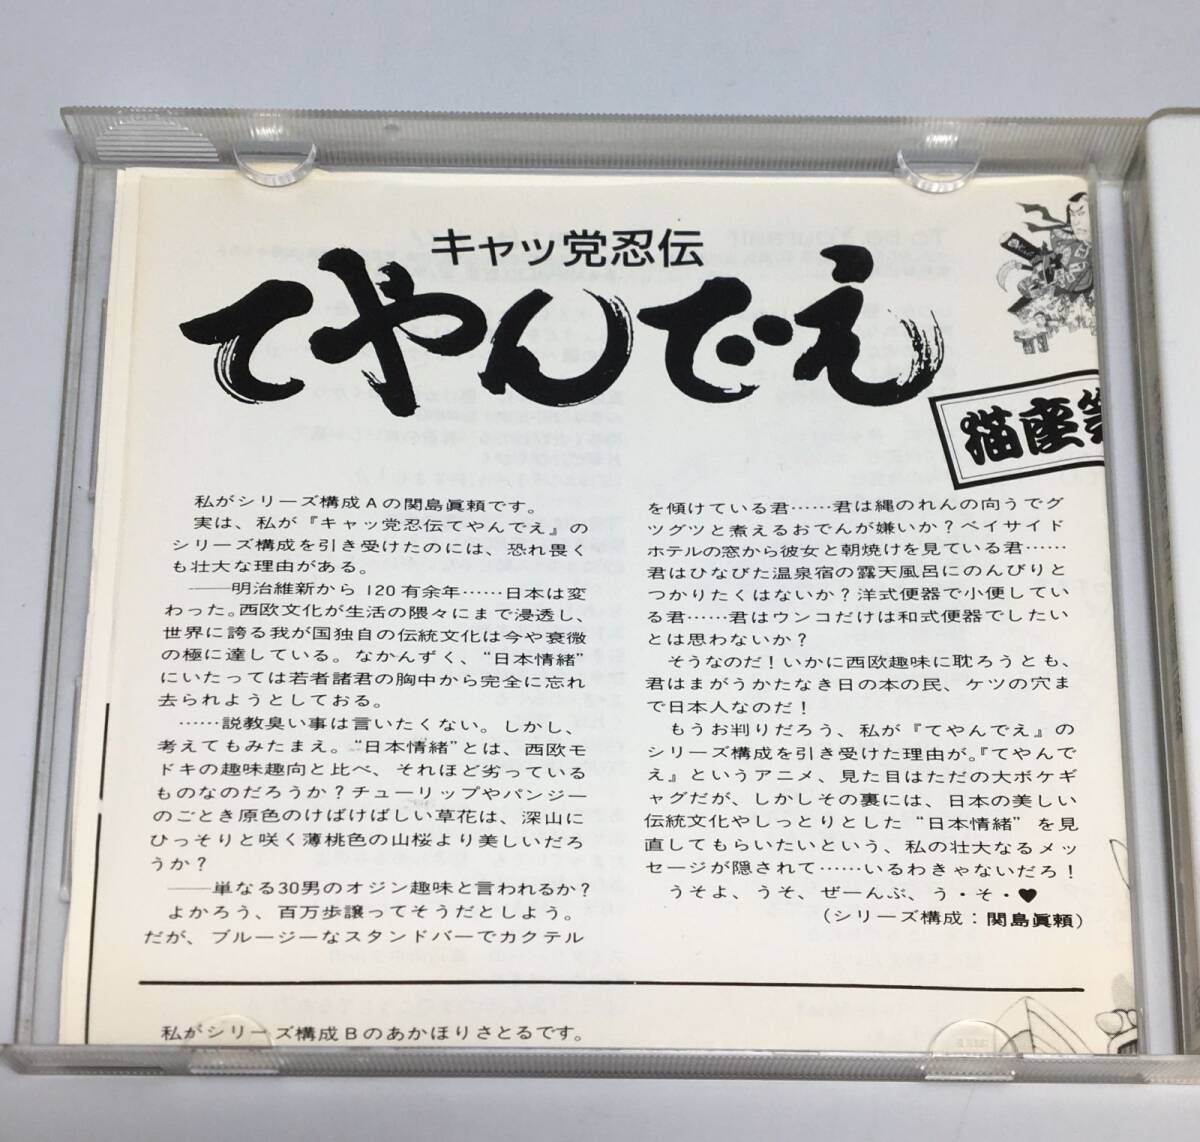 キャッ党忍伝
てやんでえ
猫座
私がシリーズ構成Aの関島眞頼です。
実は、私が『キャッ党忍伝てやんでえ』の
シリーズ構成を引き受けたのには、恐れ畏く
も壮大な理由がある。
――明治維新から120有余年……日本は変
わった。西欧文化が生活の隅々にまで浸透し、
世界に誇る我が国独自の伝統文化は今や衰微
の極に達している。なかんずく、“日本情緒”
にいたっては若者諸君の胸中から完全に忘れ
去られようとしておる。
……説教臭い事は言いたくない。しかし、
考えてもみたまえ。“日本情緒”とは、西欧モ
ドキの趣味趣向と比べ、それほど劣っている
ものなのだろうか？チューリップやパンジー
のごとき原色のけばけばしい草花は、深山に
ひっそりと咲く薄桃色の山桜より美しいだろ
うか？
――単なる30男のオジン趣味と言われるか？
よかろう、百万歩譲ってそうだとしよう。
だが、ブルージーなスタンドバーでカクテル
を傾けている君……君は縄のれんの向うでグ
ツグツと煮えるおでんが嫌いか？ベイサイド
ホテルの窓から彼女と朝焼けを見ている君……
君はひなびた温泉宿の露天風呂にのんびりと
つかりたくはないか？洋式便器で小便してい
る君……君はウンコだけは和式便器でしたい
とは思わないか？
そうなのだ！いかに西欧趣味に耽ろうとも、
君はまがうかたなき日の本の民、ケツの穴ま
で日本人なのだ！
もうお判りだろう、私が『てやんでえ』の
シリーズ構成を引き受けた理由が。『てやんで
え』というアニメ、見た目はただの大ボケギ
ャグだが、しかしその裏には、日本の美しい
伝統文化やしっとりとした“日本情緒”を見
直してもらいたいという、私の壮大なるメッ
セージが隠されて……いるわきゃないだろ！
うそよ、うそ、ぜーんぶ、う・そ・♥
（シリーズ構成：関島眞頼）
私がシリーズ構成Bのあかほりさとるです。